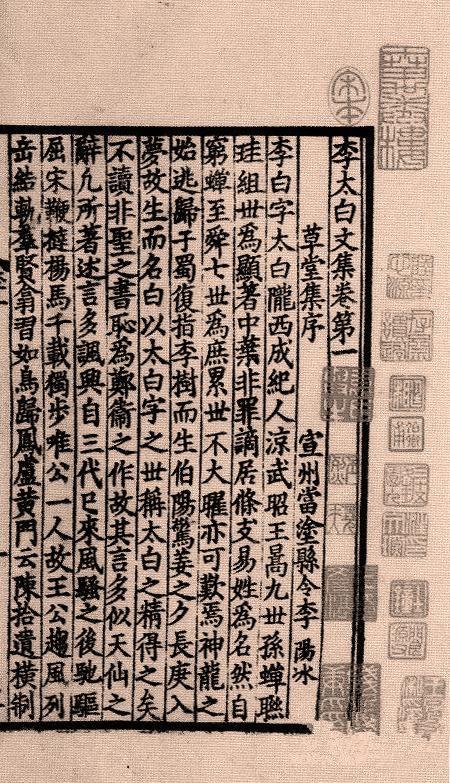 李太白文集卷第一
草堂集序
宣州當塗縣令李陽冰
李白字太白隴西成紀人涼武昭王暠九世孫蟬聯
珪組世爲顯著中葉非罪謫居條支易姓爲名然自
窮蟬至舜七世爲庶累世不大曜亦可歎焉神龍之
始逃歸于蜀復指李樹而生伯陽驚姜之夕長庚入
夢故生而名白以太白字之世稱太白之精得之矣
不讀非聖之書恥爲鄭衞之作故其言多似天仙之
辭凡所著述言多諷興自三代已來風騷之後馳驅
屈宋鞭撻楊馬千載獨步唯公一人故王公趨風列
岳結軌羣賢翕習如鳥歸鳳盧黃門云陳拾遺橫制